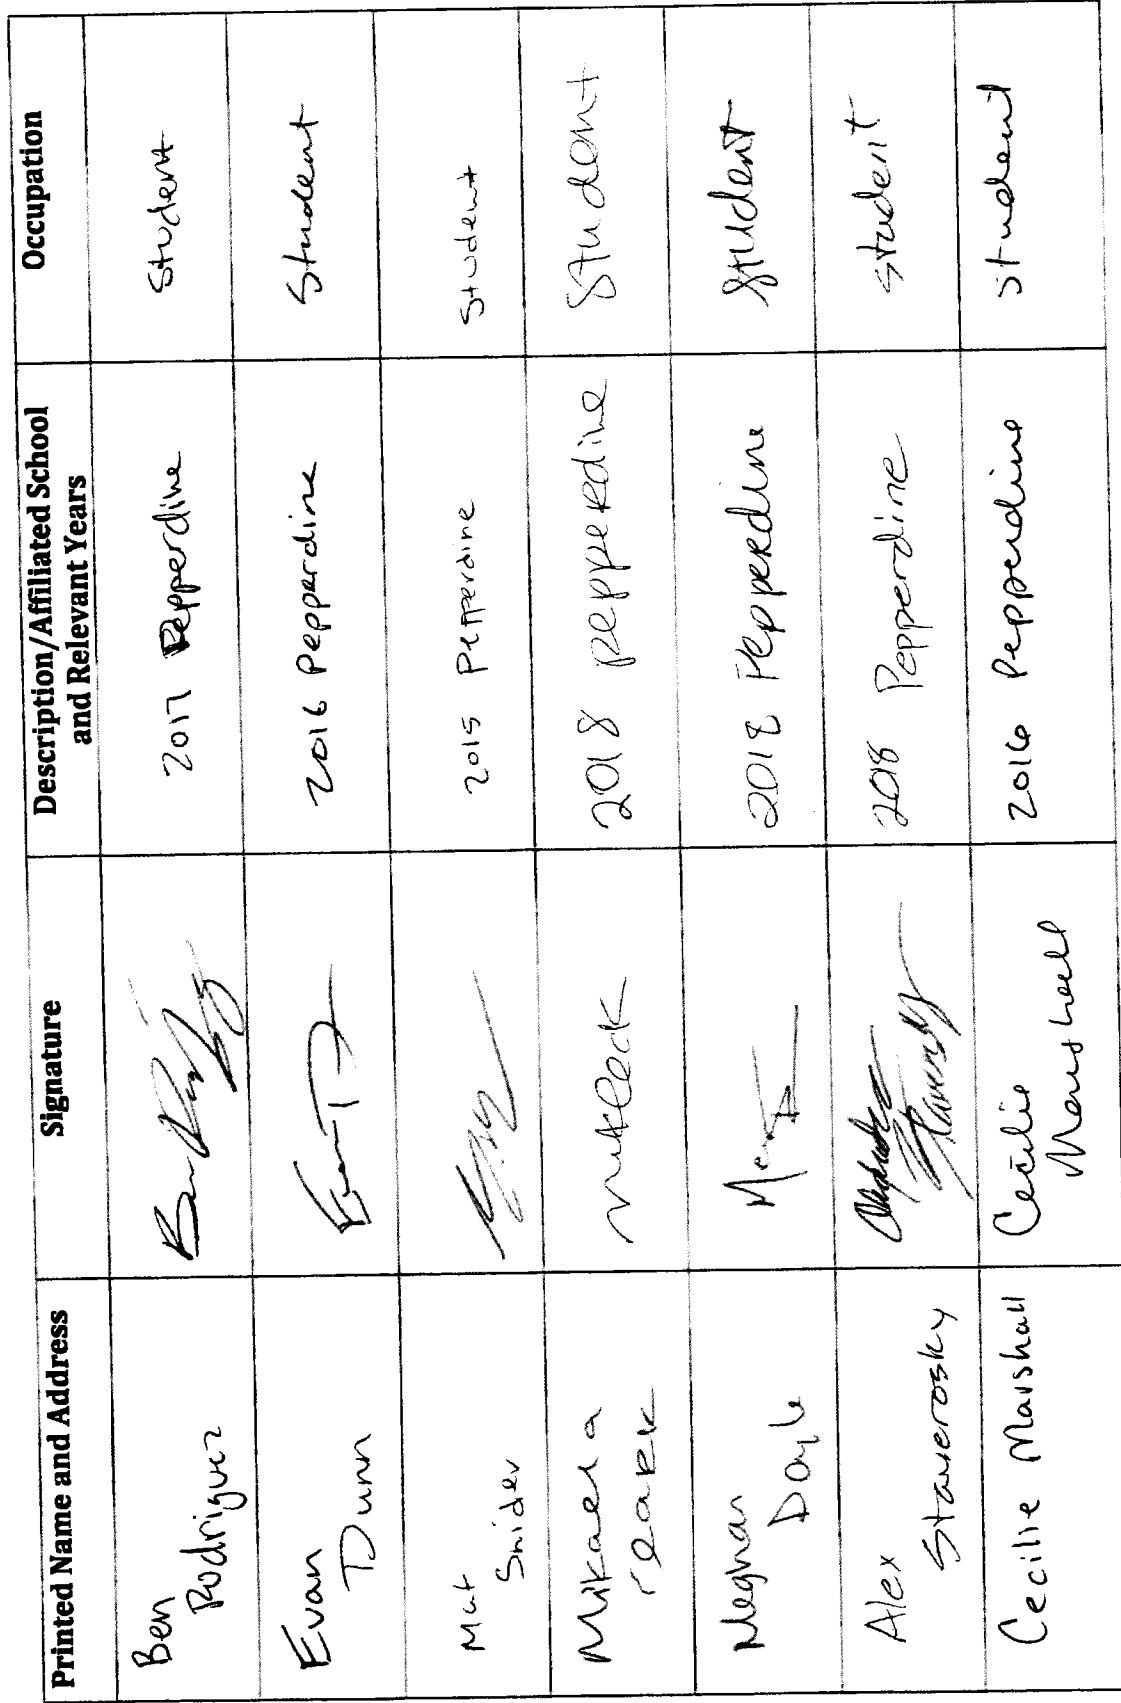 Printed Name and Address Signature Description/Affiliated School and Relevant Years Occupation
Ben Rodriguez 2017 Pepperdine Student
Evan Dunn 2016 Pepperdine Student
Mat Snider 2015 Pepperdine Student
Mikaela 2018 pepperdine Student
Meghan Doyle 2018 Pepperdine Student
Alex Stawerosky 2018 Pepperdine student
Cecilie Marshall Cecilie Marshall 2016 Pepperdine student